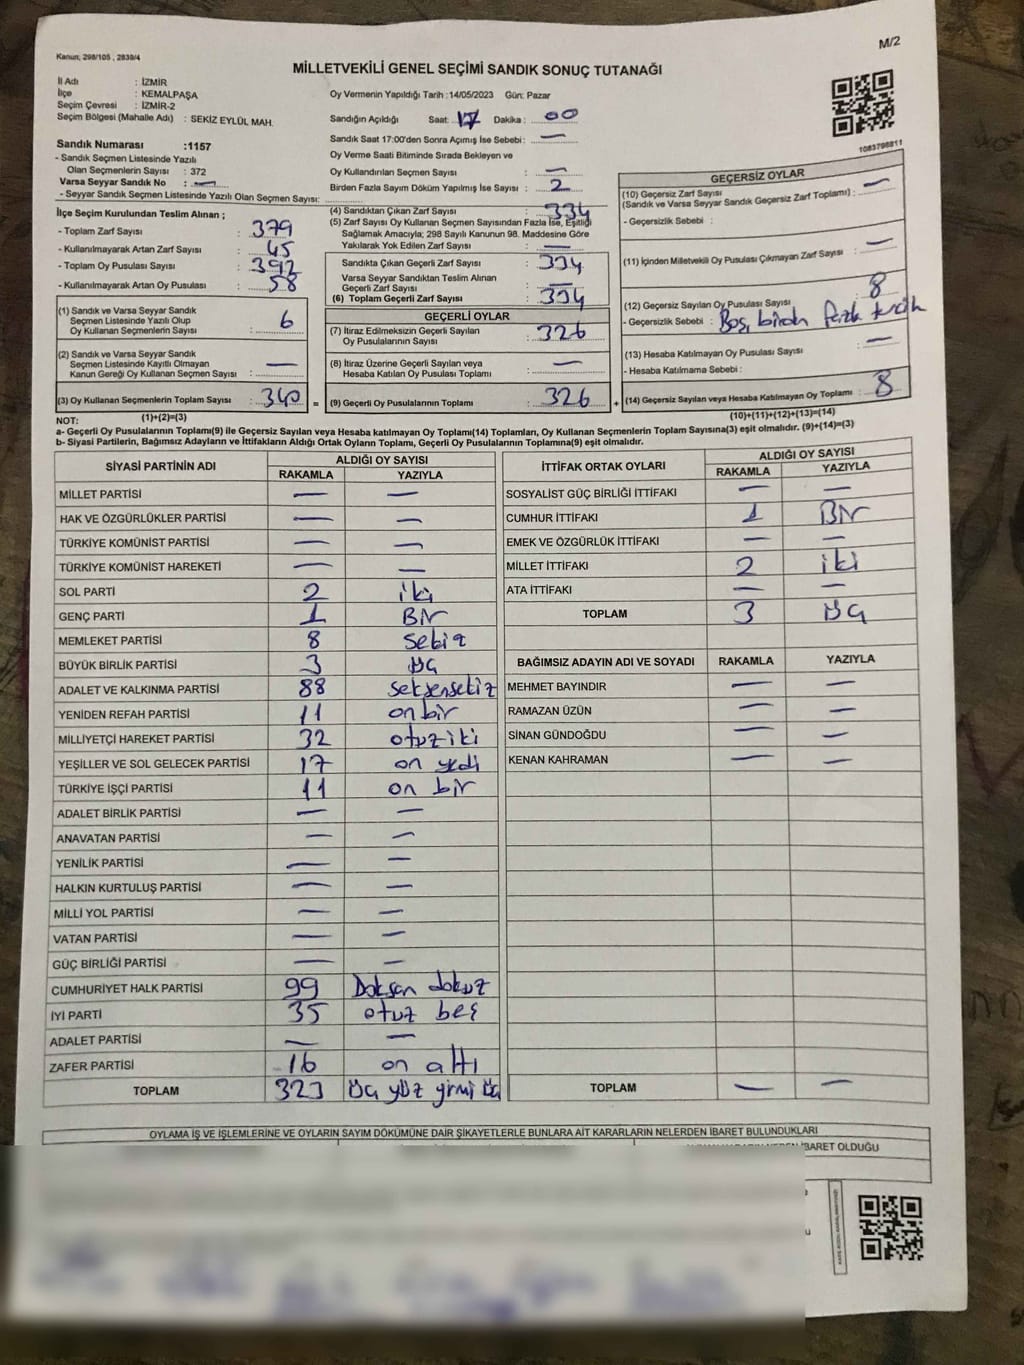 Kanun; 298/105 , 2839/4
M/2
MİLLETVEKİLİ GENEL SEÇİMİ SANDIK SONUÇ TUTANAĞI
İl Adı : İZMİR
İlçe : KEMALPAŞA
Seçim Çevresi : İZMİR-2
Seçim Bölgesi (Mahalle Adı) : SEKİZ EYLÜL MAH.
Oy Vermenin Yapıldığı Tarih :14/05/2023 Gün: Pazar
Sandığın Açıldığı Saat: 17 Dakika : 00
Sandık Saat 17:00'den Sonra Açımış İse Sebebi : —
Oy Verme Saati Bitiminde Sırada Bekleyen ve
Oy Kullandırılan Seçmen Sayısı : —
Birden Fazla Sayım Döküm Yapılmış İse Sayısı : 2
1083798811
Sandık Numarası :1157
- Sandık Seçmen Listesinde Yazılı
Olan Seçmenlerin Sayısı : 372
Varsa Seyyar Sandık No : —
- Seyyar Sandık Seçmen Listesinde Yazılı Olan Seçmen Sayısı:
İlçe Seçim Kurulundan Teslim Alınan ;
- Toplam Zarf Sayısı : 379
- Kullanılmayarak Artan Zarf Sayısı : 45
- Toplam Oy Pusulası Sayısı : 392
- Kullanılmayarak Artan Oy Pusulası : 58
(1) Sandık ve Varsa Seyyar Sandık
Seçmen Listesinde Yazılı Olup
Oy Kullanan Seçmenlerin Sayısı : 6
(2) Sandık ve Varsa Seyyar Sandık
Seçmen Listesinde Kayıtlı Olmayan
Kanun Gereği Oy Kullanan Seçmen Sayısı : —
(3) Oy Kullanan Seçmenlerin Toplam Sayısı : 340
(1)+(2)=(3)
(4) Sandıktan Çıkan Zarf Sayısı : 334
(5) Zarf Sayısı Oy Kullanan Seçmen Sayısından Fazla İse, Eşitliği
Sağlamak Amacıyla; 298 Sayılı Kanunun 98. Maddesine Göre
Yakılarak Yok Edilen Zarf Sayısı : —
Sandıkta Çıkan Geçerli Zarf Sayısı : 334
Varsa Seyyar Sandıktan Teslim Alınan
Geçerli Zarf Sayısı : —
(6) Toplam Geçerli Zarf Sayısı : 334
GEÇERLİ OYLAR
(7) İtiraz Edilmeksizin Geçerli Sayılan
Oy Pusulalarının Sayısı : 326
(8) İtiraz Üzerine Geçerli Sayılan veya
Hesaba Katılan Oy Pusulası Toplamı : —
= (9) Geçerli Oy Pusulalarının Toplamı : 326 +
GEÇERSİZ OYLAR
(10) Geçersiz Zarf Sayısı
(Sandık ve Varsa Seyyar Sandık Geçersiz Zarf Toplamı) : —
- Geçersizlik Sebebi :
(11) İçinden Milletvekili Oy Pusulası Çıkmayan Zarf Sayısı : —
(12) Geçersiz Sayılan Oy Pusulası Sayısı : 8
- Geçersizlik Sebebi : Boş, birden fazla tercih
(13) Hesaba Katılmayan Oy Pusulası Sayısı : —
- Hesaba Katılmama Sebebi :
(14) Geçersiz Sayılan veya Hesaba Katılmayan Oy Toplamı : 8
(10)+(11)+(12)+(13)=(14)
NOT:
a- Geçerli Oy Pusulalarının Toplamı(9) ile Geçersiz Sayılan veya Hesaba katılmayan Oy Toplamı(14) Toplamları, Oy Kullanan Seçmenlerin Toplam Sayısına(3) eşit olmalıdır. (9)+(14)=(3)
b- Siyasi Partilerin, Bağımsız Adayların ve İttifakların Aldığı Ortak Oyların Toplamı, Geçerli Oy Pusulalarının Toplamına(9) eşit olmalıdır.
SİYASİ PARTİNİN ADI ALDIĞI OY SAYISI
RAKAMLA YAZIYLA
MİLLET PARTİSİ — —
HAK VE ÖZGÜRLÜKLER PARTİSİ — —
TÜRKİYE KOMÜNİST PARTİSİ — —
TÜRKİYE KOMÜNİST HAREKETİ — —
SOL PARTİ 2 iki
GENÇ PARTİ 1 Bir
MEMLEKET PARTİSİ 8 sekiz
BÜYÜK BİRLİK PARTİSİ 3 üç
ADALET VE KALKINMA PARTİSİ 88 seksensekiz
YENİDEN REFAH PARTİSİ 11 on bir
MİLLİYETÇİ HAREKET PARTİSİ 32 otuz iki
YEŞİLLER VE SOL GELECEK PARTİSİ 17 on yedi
TÜRKİYE İŞÇİ PARTİSİ 11 on bir
ADALET BİRLİK PARTİSİ — —
ANAVATAN PARTİSİ — —
YENİLİK PARTİSİ — —
HALKIN KURTULUŞ PARTİSİ — —
MİLLİ YOL PARTİSİ — —
VATAN PARTİSİ — —
GÜÇ BİRLİĞİ PARTİSİ — —
CUMHURİYET HALK PARTİSİ 99 Doksan dokuz
İYİ PARTİ 35 otuz beş
ADALET PARTİSİ — —
ZAFER PARTİSİ 16 on altı
TOPLAM 323 üç yüz yirmi üç
İTTİFAK ORTAK OYLARI ALDIĞI OY SAYISI
RAKAMLA YAZIYLA
SOSYALİST GÜÇ BİRLİĞİ İTTİFAKI — —
CUMHUR İTTİFAKI 1 Bir
EMEK VE ÖZGÜRLÜK İTTİFAKI — —
MİLLET İTTİFAKI 2 iki
ATA İTTİFAKI — —
TOPLAM 3 üç
BAĞIMSIZ ADAYIN ADI VE SOYADI RAKAMLA YAZIYLA
MEHMET BAYINDIR — —
RAMAZAN ÜZÜN — —
SİNAN GÜNDOĞDU — —
KENAN KAHRAMAN — —
TOPLAM — —
OYLAMA İŞ VE İŞLEMLERİNE VE OYLARIN SAYIM DÖKÜMÜNE DAİR ŞİKAYETLERLE BUNLARA AİT KARARLARIN NELERDEN İBARET BULUNDUKLARI
İBARET OLDUĞU